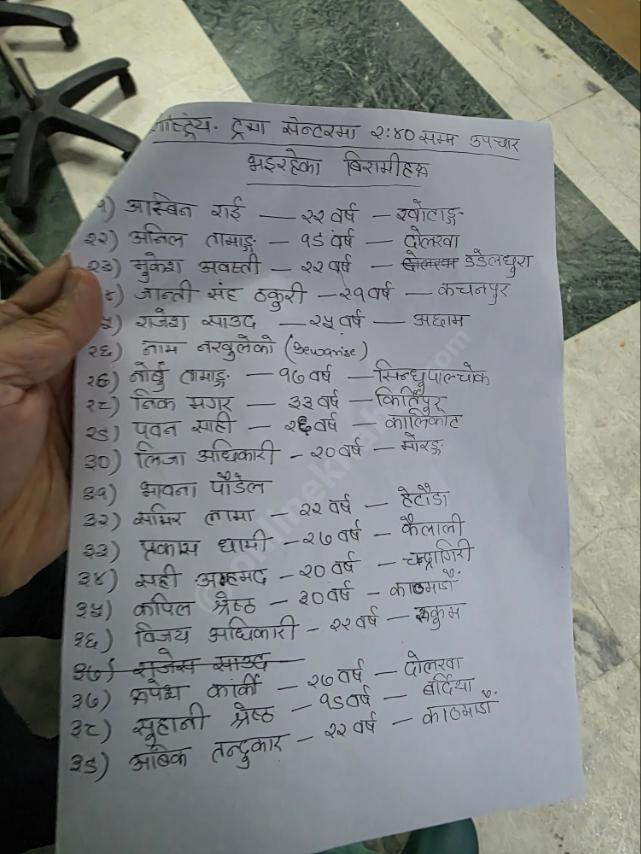 राष्ट्रिय ट्रमा सेन्टरमा २:४० सम्म उपचार
भइरहेका बिरामीहरू
१) आस्बिन राई — २२ वर्ष — खोटाङ्ग
२२) अनिल तामाङ्ग — १९ वर्ष — दोलखा
२३) मुकेश अवस्ती — २२ वर्ष — डडेलधुरा
४) जान्ती संह ठकुरी – २१ वर्ष – कचनपुर
५) राजेश साउद — २५ वर्ष — अछाम
२६) नाम नखुलेको
२७) नोर्बु तामाङ्ग — १७ वर्ष — सिन्धुपाल्चोक
२८) निक मगर — ३३ वर्ष — किर्तिपूर
२९) पवन साही — २६ वर्ष — कालिकोट
३०) लिजा अधिकारी – २० वर्ष – मोरङ्ग
३१) भावना पौडेल
३२) समिर लामा — २२ वर्ष — हेटौडा
३३) प्रकास धामी — २७ वर्ष — कैलाली
३४) सही अहमद – २० वर्ष – चन्द्रागिरी
३५) कपिल श्रेष्ठ – ३० वर्ष – काठमाडौं
३६) विजय अधिकारी – २२ वर्ष – रुकुम
३७) राजेस साउद
३७) रूपेश कार्की — २७ वर्ष — दोलखा
३८) सुहानी श्रेष्ठ — १९ वर्ष — बर्दिया
३९) अबिक तन्दुकार — २२ वर्ष — काठमाडौं